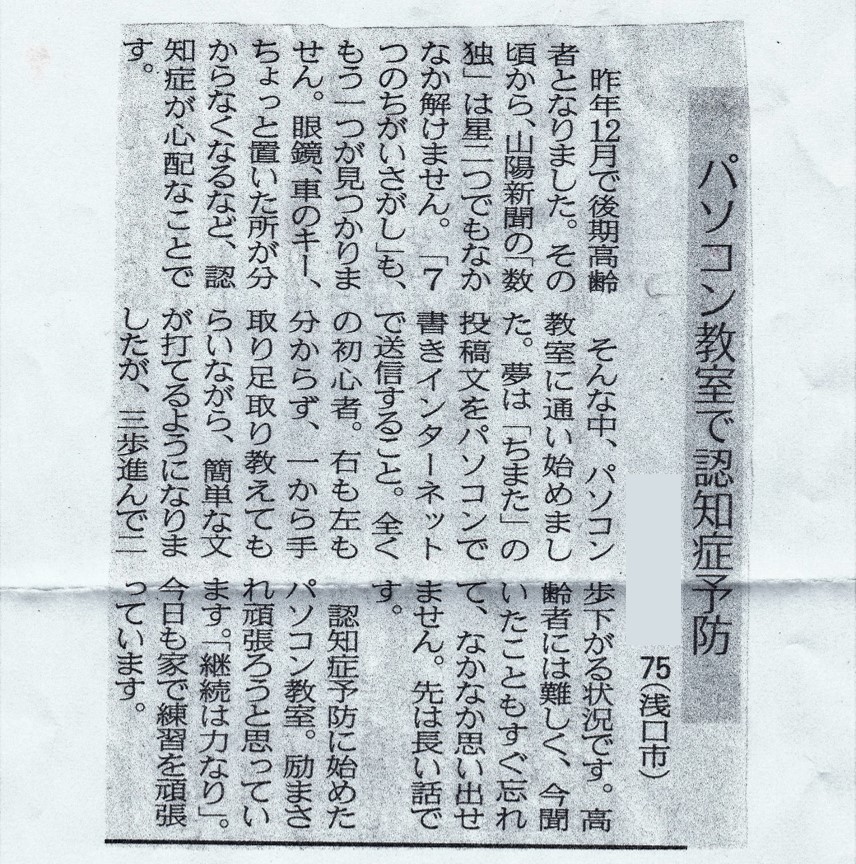 パソコン教室で認知症予防
75(浅口市)
昨年12月で後期高齢
者となりました。その
頃から、山陽新聞の「数
独」は星二つでもなか
なか解けません。「7
つのちがいさがし」も、
もう一つが見つかりま
せん。眼鏡、車のキー、
ちょっと置いた所が分
からなくなるなど、認
知症が心配なことで
す。
そんな中、パソコン
教室に通い始めまし
た。夢は「ちまた」の
投稿文をパソコンで
書きインターネット
で送信すること。全く
の初心者。右も左も
分からず、一から手
取り足取り教えても
らいながら、簡単な文
が打てるようになりま
したが、三歩進んで二
歩下がる状況です。高
齢者には難しく、今聞
いたこともすぐ忘れ
て、なかなか思い出せ
ません。先は長い話で
す。
認知症予防に始めた
パソコン教室。励まさ
れ頑張ろうと思ってい
ます。「継続は力なり」。
今日も家で練習を頑張
っています。